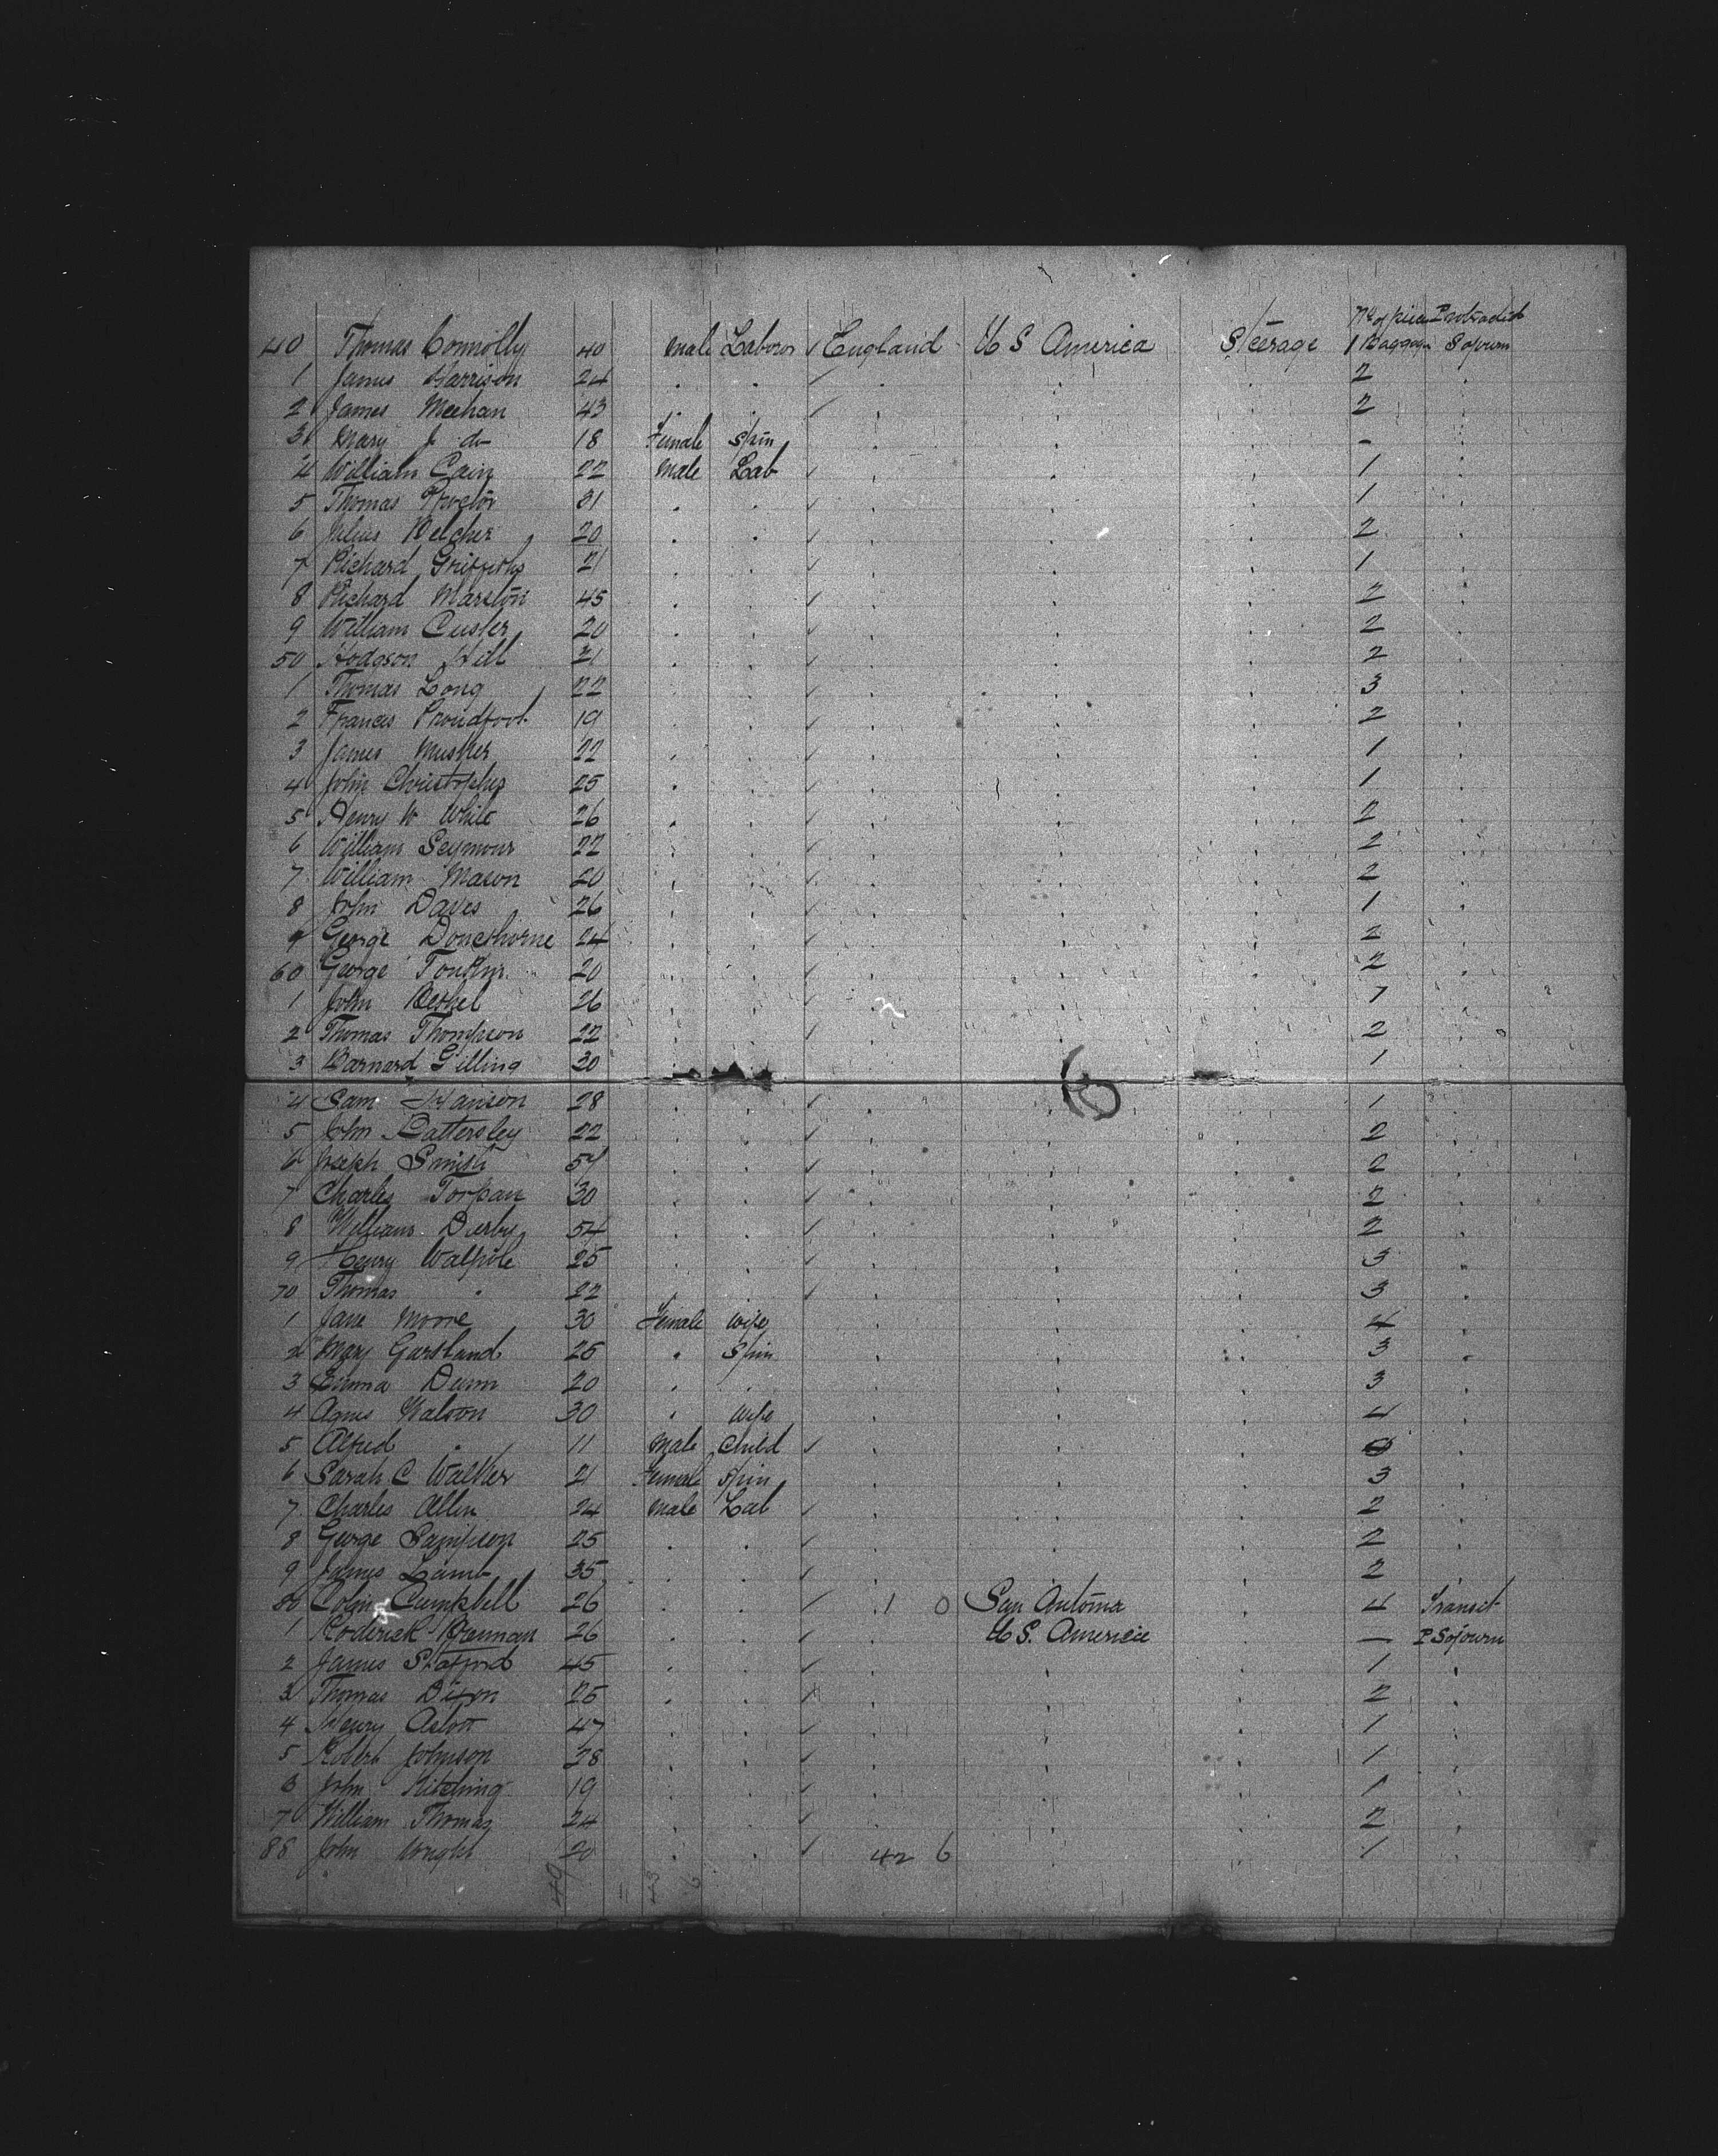 No of pieces Protracted
40 Thomas Connolly 40 Male Labour ✓ England U S America Steerage 1 Baggage Sojourn
1 James Harrison 24 . . ✓ . . . 2 .
2 James Meehan 43 . . ✓ . . . 2 .
3 Mary J do 18 Female Spin . . . - .
4 William Cain 22 Male Lab ✓ . . . 1 .
5 Thomas Proctor 31 . . ✓ . . . 1 .
6 Julius Belcher 20 . . ✓ . . . 2 .
7 Richard Griffiths 21 . . ✓ . . . 1 .
8 Richard Marston 45 . . ✓ . . . 2 .
9 William Custer 20 . . ✓ . . . 2 .
50 Hodgson Hill 21 . . ✓ . . . 2 .
1 Thomas Long 22 . . ✓ . . . 3 .
2 Francis Proudfoot 19 . . ✓ . . . 2 .
3 James Musker 22 . . ✓ . . . 1 .
4 John Christophes 25 . . ✓ . . . 1 .
5 Henry W White 26 . . ✓ . . . 2 .
6 William Seymour 22 . . ✓ . . . 2 .
7 William Mason 20 . . ✓ . . . 2 .
8 John Daves 26 . . ✓ . . . 1 .
9 George Donethorne 24 . . ✓ . . . 2 .
60 George Tonkin 20 . . ✓ . . . 2 .
1 John Bethel 26 . . ✓ . . . 1 .
2 Thomas Thompson 22 . . ✓ . . . 2 .
3 Barnard Gilling 30 1
4 Sam Hanson 28 . . ✓ . . . 1 .
5 John Battersley 22 . . ✓ . . . 2 .
6 Joseph Smith 57 . . ✓ . . . 2 .
7 Charles Torpan 30 . . ✓ . . . 2 .
8 William Derby 54 . . ✓ . . . 2 .
9 Henry Walpole 25 . . ✓ . . . 3 "
70 Thomas " 22 . . ✓ . . . 3 .
1 Jane Moore 30 Female Wife . . . 4 .
2 Mary Garthand 25 " Spin . . . 3 .
3 Emma Dunn 20 . . . . . 3 .
4 Agnes Watson 30 " Wife . . . 4 .
5 Alfred " 11 Male Child ✓ . . . 0 .
6 Sarah C Walker 21 Female Spin . . . 3 .
7 Charles Allen 24 Male Lab ✓ . . . 2 .
8 George Sampson 25 . . ✓ . . . 2 .
9 James Lamb 35 . . ✓ . . . 2 .
80 Colin Campbell 26 . . ✓ 1 0 San Antonia . 4 Transit
1 Roderick Brennan 26 . . ✓ U S. America . — P Sojourn
2 James Stafford 45 . . ✓ . . . 1 "
3 Thomas Dixon 25 . . ✓ . . . 2 .
4 Henry 47 . . ✓ . . . 1 .
5 Robert Johnson 28 . . ✓ . . . 1 .
6 John Kitching 19 . . ✓ . . . 1 .
7 William Thomas 24 . . ✓ . . . 2 .
88 John Wright 20 . . ✓ 42 6 . . 1 .
49 11 43 6